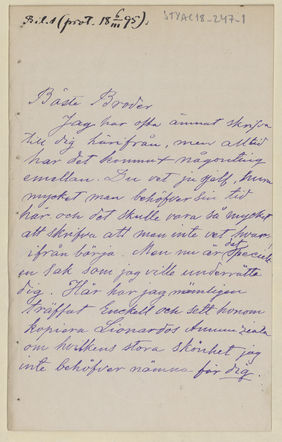 Bil. 1 (prot. 18 6/III 95).
STYAC18-247-1
Bäste Broder
Jag har ofta ämnat skrifva
till dig härifrån, men alltid
har det kommit någonting
emellan. Du vet ju själf, huru
mycket man behöfver sin tid
här och det skulle vara så mycket
att skrifva att man inte vet hvar
ifrån börja. Men nu är det specielt
en sak som jag ville underrätta
dig. Här har jag nämligen
träffat Enckell och sett honom
kopiera Lionardos Annunziata
om hvilkens stora skönhet jag
inte behöfver nämna för dig.